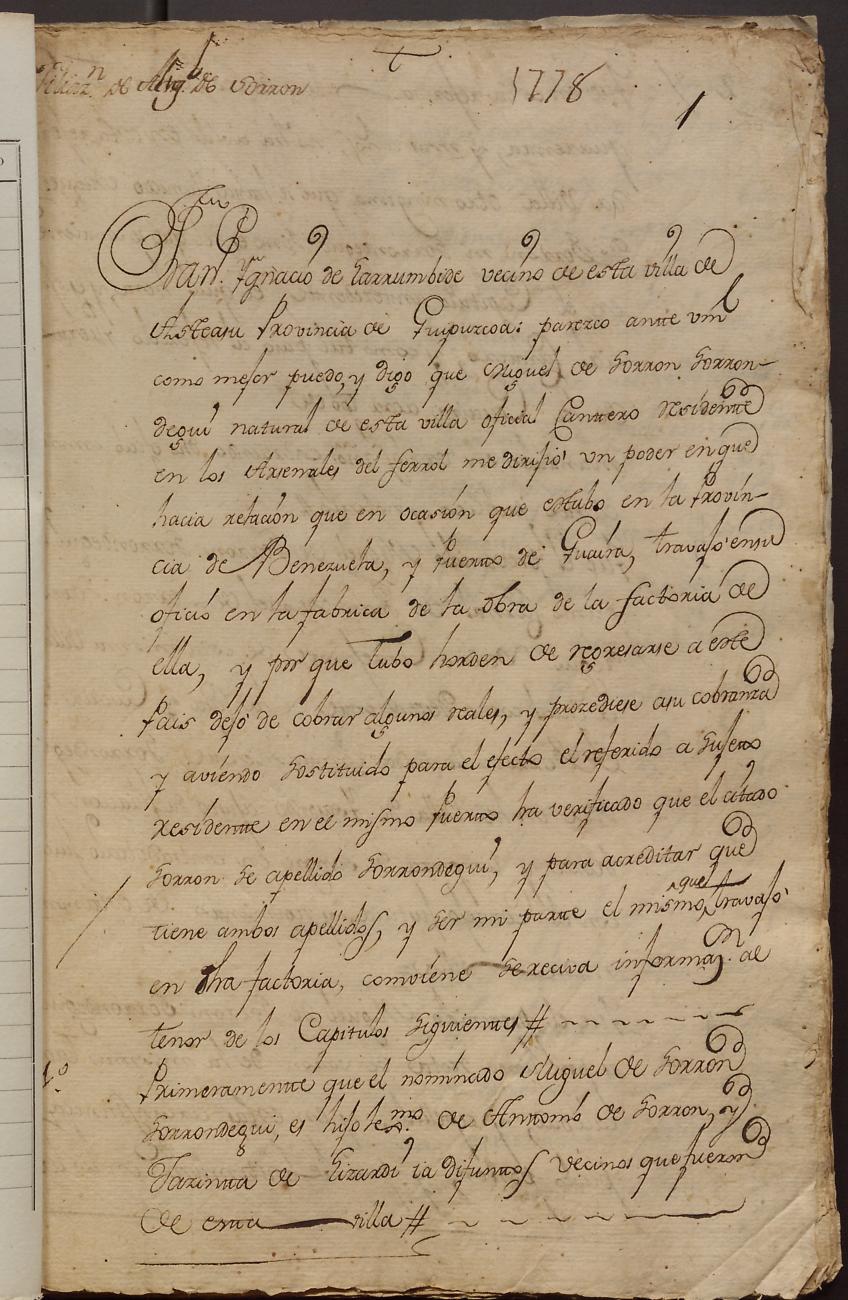 1778
1
Juan Ygnacio de Larrumbide vecino de esta villa de
Asteasu Provincia de Guipuzcoa: parezco antte vm
como mejor puedo, y digo que Miguel de Sorron Sorron-
degui natural de esta villa oficial Canttero residentte
en los Arsenales del ferrol me dirijió un poder en que
hacia relación que en ocasión que estubo en la Provin-
cia de Benezuela, y Puertto de Guaira, travajó en su
oficio en la fabrica de la obra de la factoria de
ella, y por que tubo horden de regresarse a este
Pais dejó de cobrar algunos reales, y prozediese a su cobranza
y aviendo sostituido para el efecto el referido a sujetto
residentte en el mismo Puertto ha verificado que el citado
Sorron se apellido Sorrondegui, y para acreditar que
tiene ambos apellidos, y ser mi partte el mismo que travajó
en dha factoria, combiene se reciva informaz.n al
tenor de los Capitulos siguienttes #
1.o
Primeramentte que el nominado Miguel de Sorron
Sorrondegui, es hijo lexmo de Anttonio de Sorron, y
de Lizardi ia difunttos vecinos que fueron
de estta villa #